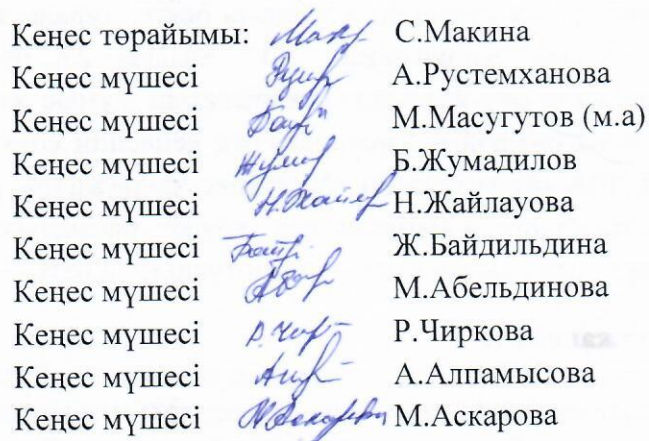 Кеңес төрайымы: С.Макина
Кеңес мүшесі А.Рустемханова
Кеңес мүшесі М.Масугутов (м.а)
Кеңес мүшесі Б.Жумадилов
Кеңес мүшесі Н.Жайлауова
Кеңес мүшесі Ж.Байдильдина
Кеңес мүшесі М.Абельдинова
Кеңес мүшесі Р.Чиркова
Кеңес мүшесі А.Алпамысова
Кеңес мүшесі М.Аскарова